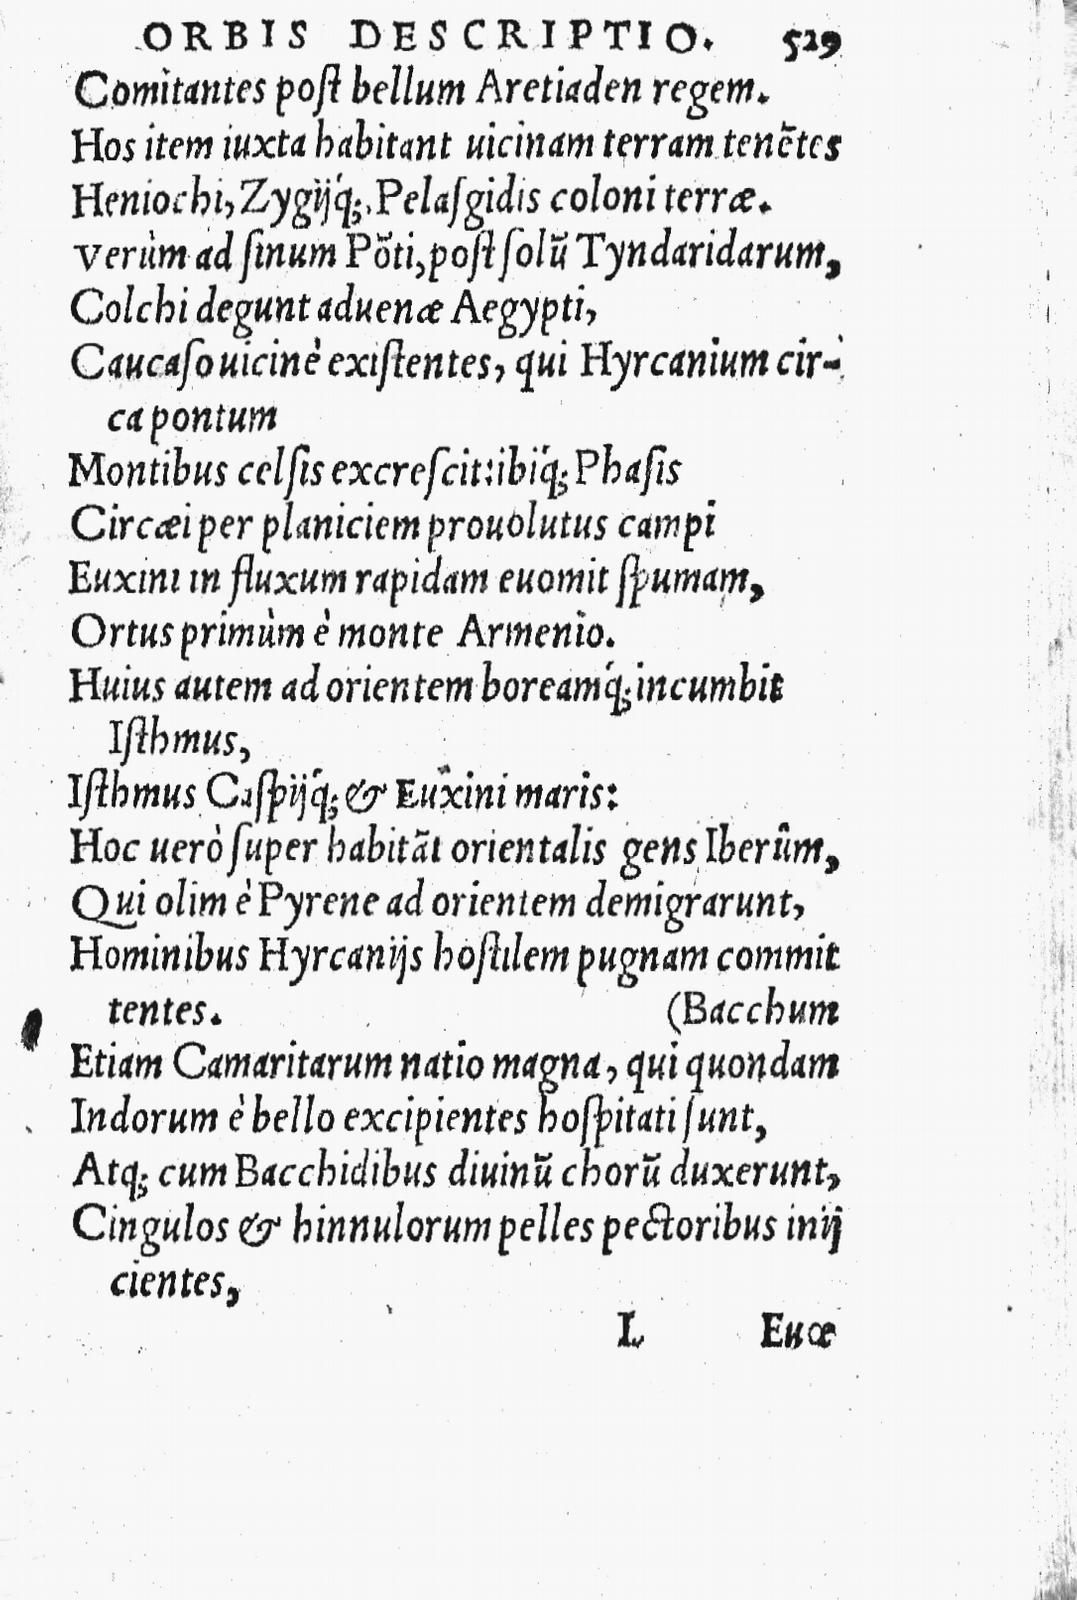 ORBIS DESCRIPTIO. 529
Comitantes poſt bellum Aretiaden regem.
Hos item iuxta habitant uicinam terram tenẽtes
Heniochi, Zygijq́;, Pelaſgidis coloni terræ.
Verùm ad ſinum Põti, poſt ſolũ Tyndaridarum,
Colchi degunt aduenæ Aegypti,
Caucaſo uicinè exiſtentes, qui Hyrcanium cir-
ca pontum
Montibus celſis excreſcit: ibiq́; Phaſis
Circæi per planiciem prouolutus campi
Euxini in fluxum rapidam euomit ſpumam,
Ortus primùm è monte Armenio.
Huius autem ad orientem boreamq́; incumbit
Iſthmus,
Iſthmus Caſpijq́; & Euxini maris:
Hoc uerò ſuper habitãt orientalis gens Iberûm,
Qui olim è Pyrene ad orientem demigrarunt,
Hominibus Hyrcanijs hoſtilem pugnam commit
tentes. (Bacchum
Etiam Camaritarum natio magna, qui quondam
Indorum è bello excipientes hoſpitati ſunt,
Atq; cum Bacchidibus diuinũ chorũ duxerunt,
Cingulos & hinnulorum pelles pectoribus inij
cientes,
L Euœ